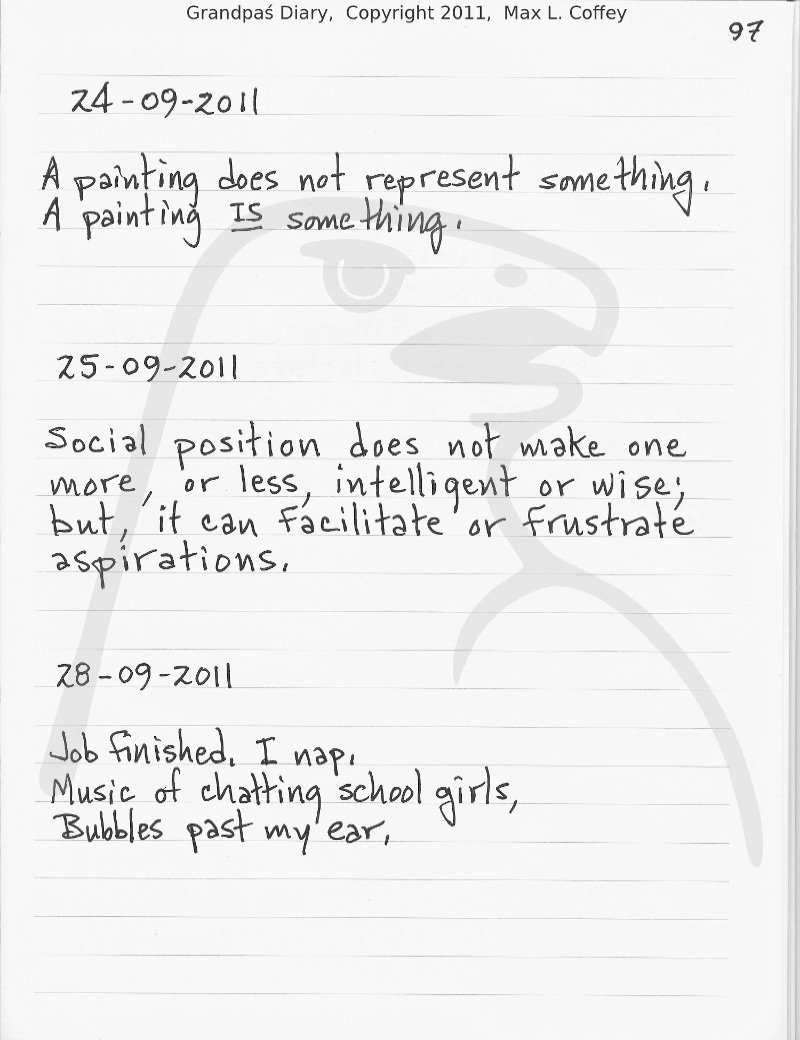 Grandpaś Diary, Copyright 2011, Max L. Coffey
97
24-09-2011
A painting does not represent something.
A painting IS something.
25-09-2011
Social position does not make one
more, or less, intelligent or wise;
but, it can facilitate or frustrate
aspirations.
28-09-2011
Job finished. I nap.
Music of chatting school girls,
Bubbles past my ear.